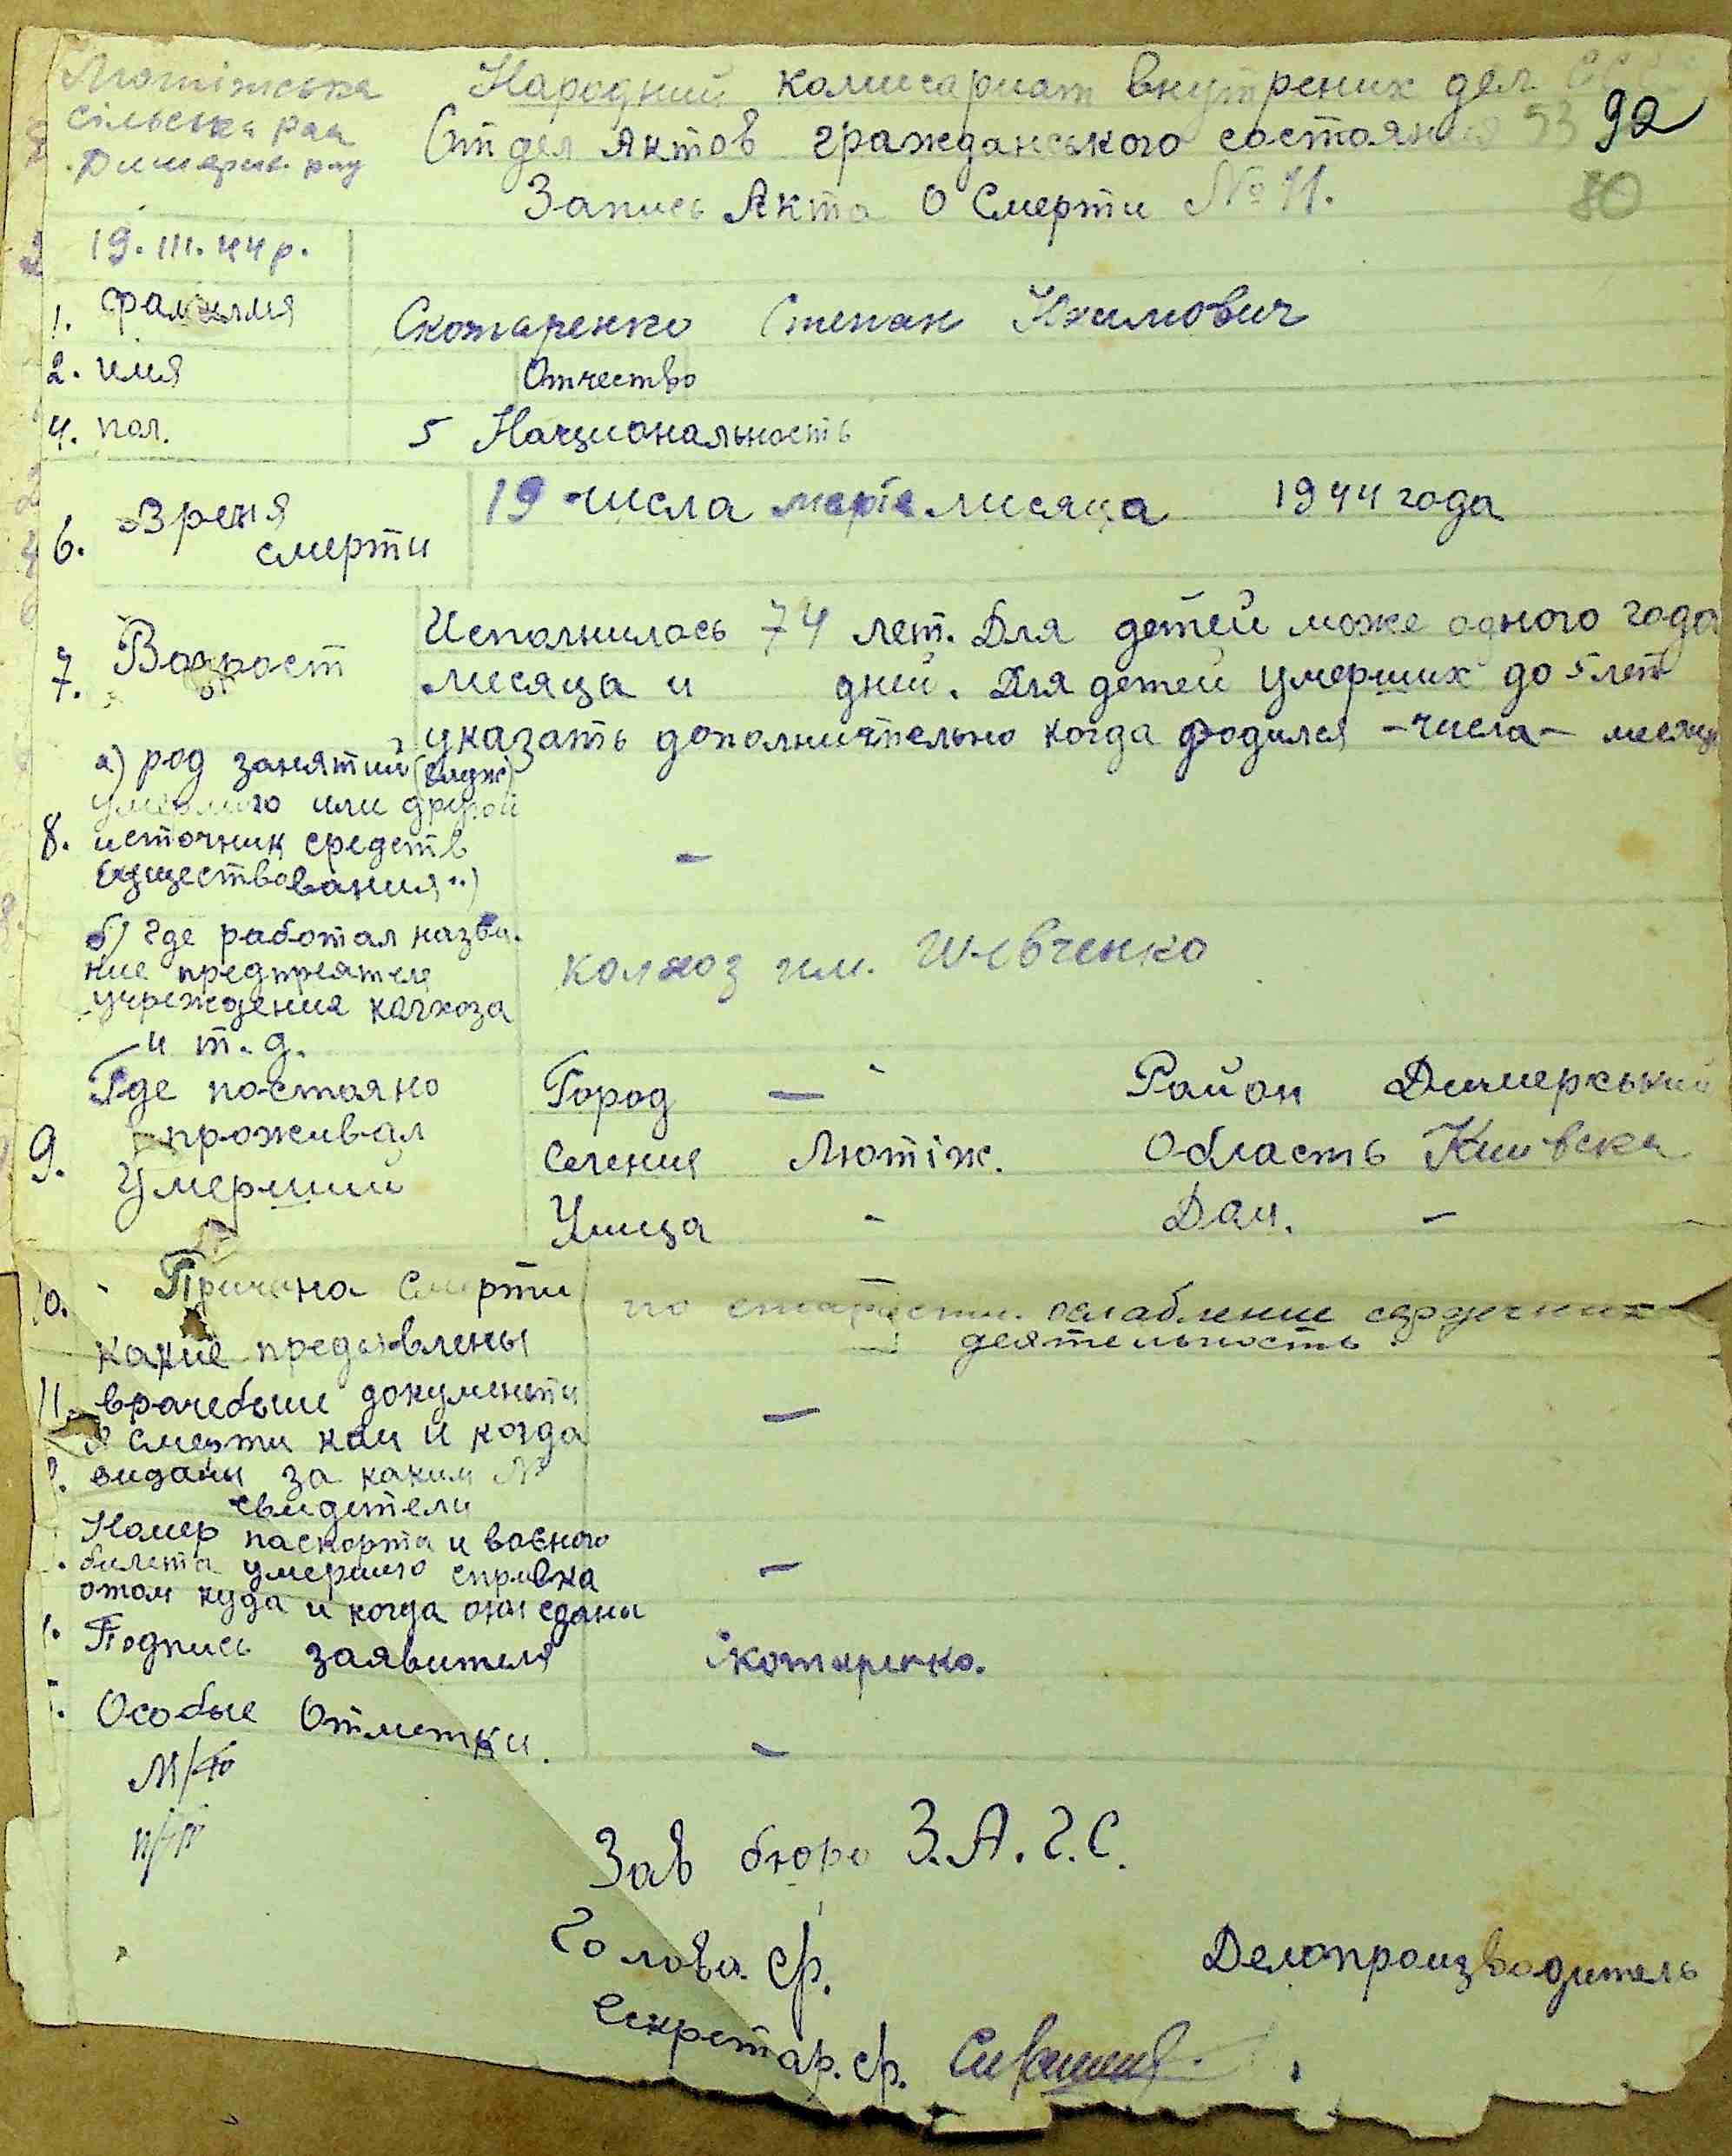 Лютіжська
сільська рад
Димерик. рау
Народний комисариат внутрених дел СССР
Отдел Актов гражданського состояния 53 92
Запись Акта О Смерти № 11.
80
19. III. 44 р.
1. фамилия Скотаренко Степан Якимович
2. имя Отчество
4. пол. 5 Национальность
6. Время смерти
19 числа марта мисяца 1944 года
7. Возраст
Исполнилось 74 лет. Для детей може одного года
месяца и дней. Для детей умерших до 5 лет
указать дополнительно когда родился - числа - месяца
а) род занятий
умершого или другой
8. источник средств
существования")
-
б) Где работал назва-
ние предприятие
учреждения колхоза
и т. д.
колхоз им. Шевченко
Где постояно
9. проживал
Умерший
Город — Район Димерський
Селения Лютіж. Область Київска
Улица - Дом. -
10. Причина Смерти
по старости. ослабление сердечних
деятельность
какие предъявлены
11. врачебыие документи
о смерти ким и когда
видани за каким №
свидетели
—
Номер паспорта и воєного
билета умершого справка
отом куда и когда они сдани
—
Подпись заявителя Скотаренко.
Особые Отметки.
—
М/П
Зав бюро З.А.Г.С.
Голова с/р.
Делопроизводитель
Секретар. с/р.